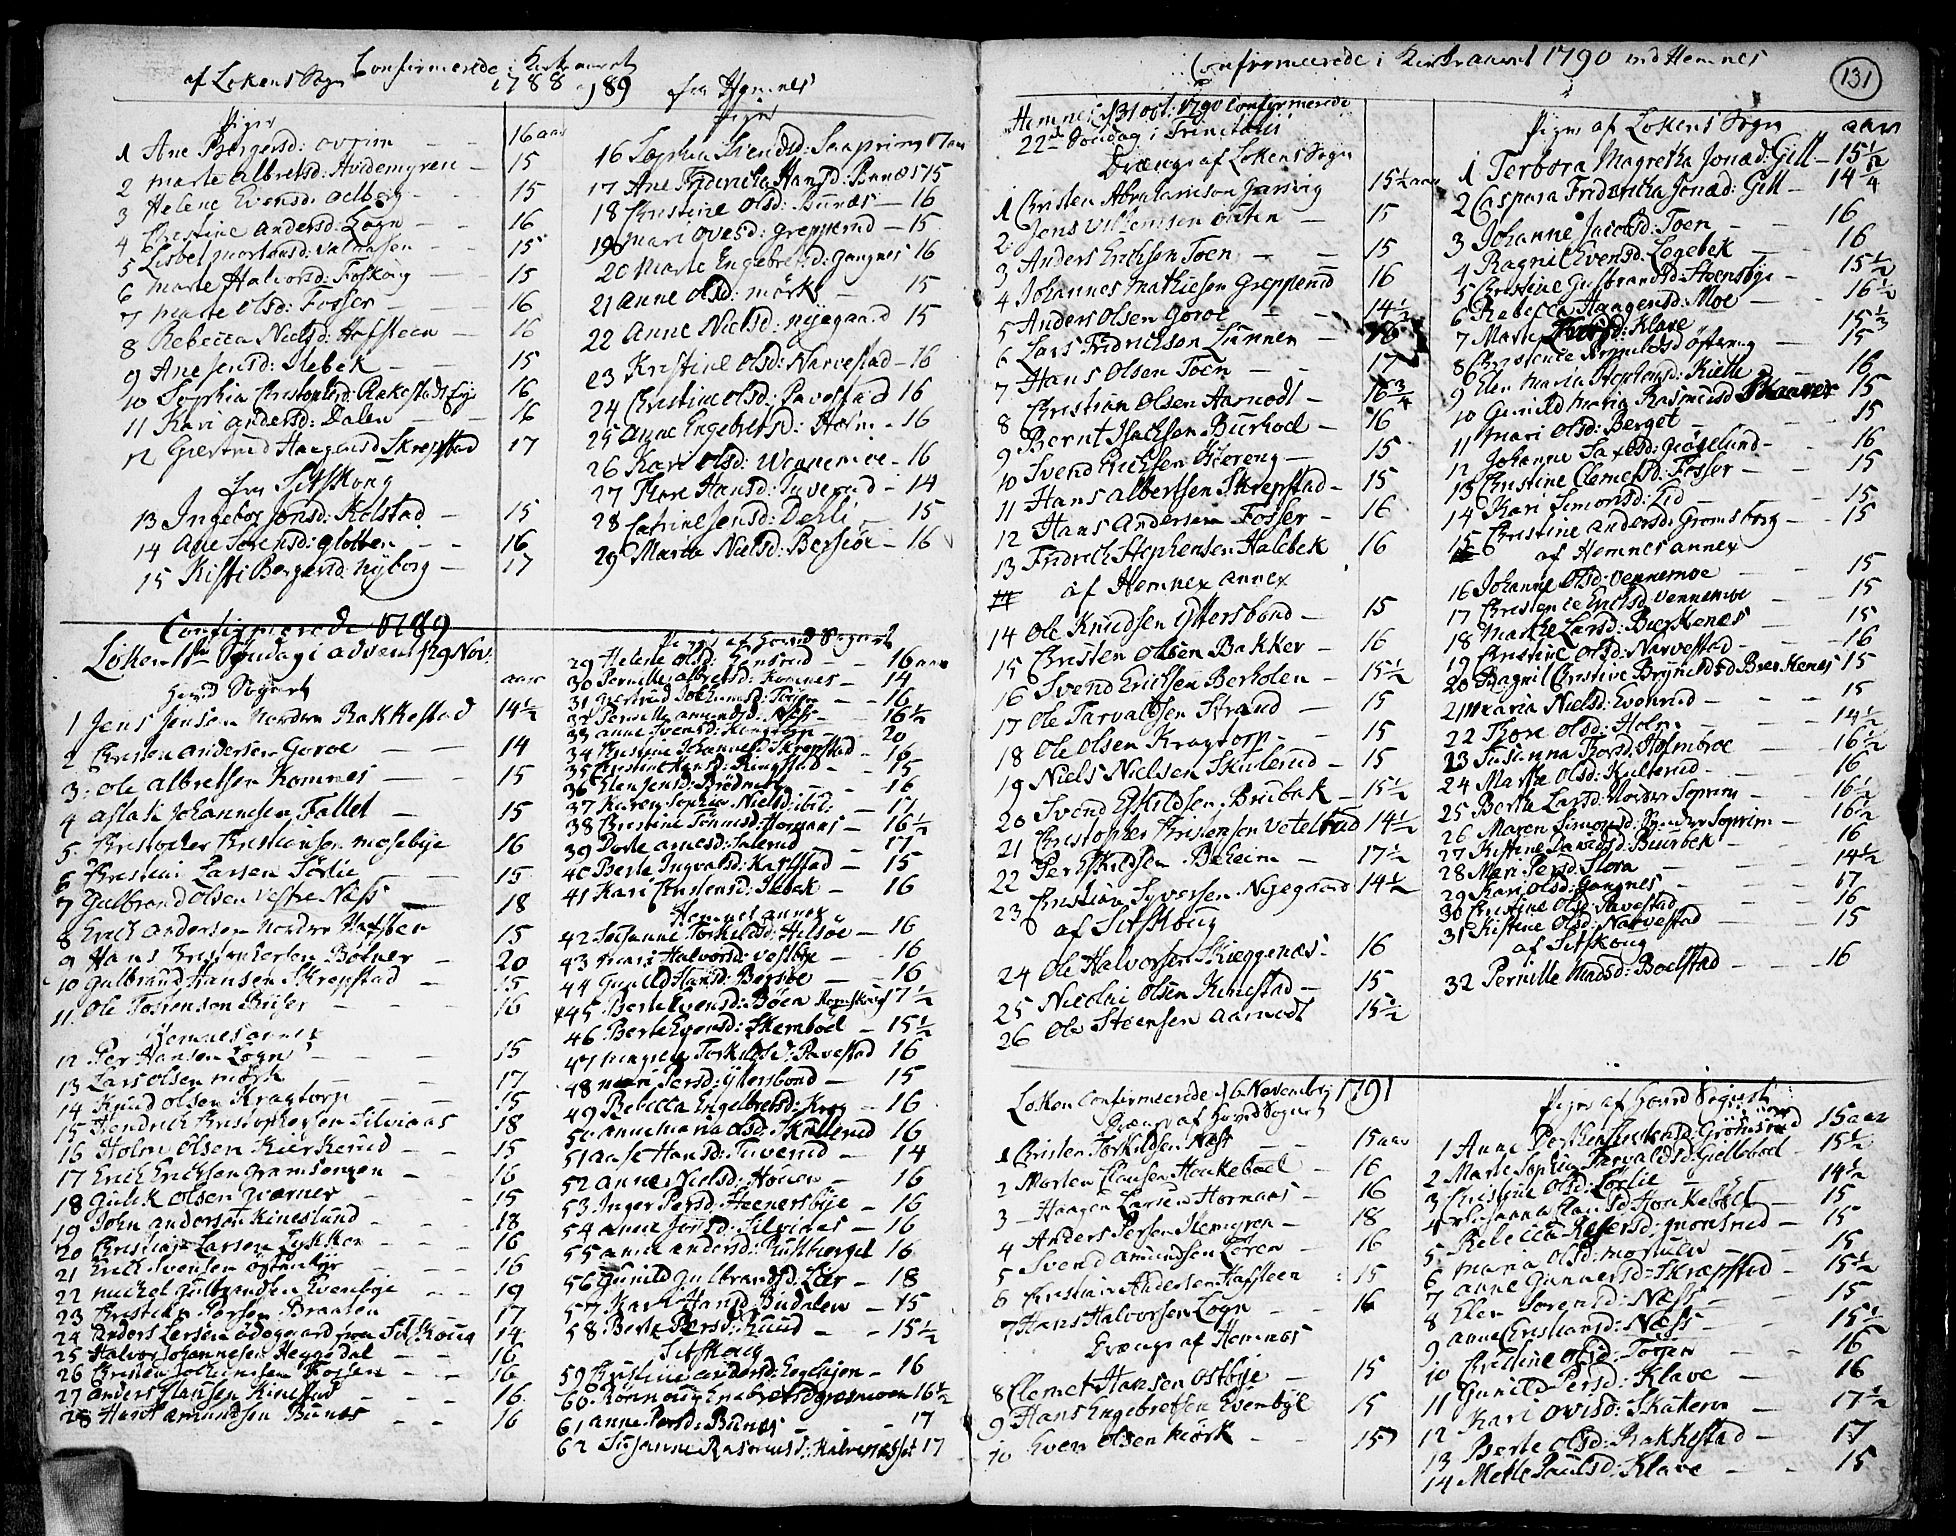 Confirmerede i Kirkeaaret
af Løkens Sogn 1788-89 fra Hemnes
Piger
1 Ane Børgersd: ovrim - 16 aar
2 Marte Albretsd: Hvidemyren - 15
3 Helene Evensd: aelberg - 15
4 Christine Andersd: Logn - 16
5 Lisbet Mortensd: - 15
6 Marte Halvorsd: Foskoug - 15
7 Marte Olsd: Fosser - 16
8 Rebecca Nielsd: Hafsteen - 16
9 Ane Jensd: Ilebek - 15
10 Sophia Christophersd: Rakestad - 16
11 Kari Andersd: Dalen - 16
12 Giertrud Haagensd Skrepstad 17
fra Sitskoug
13 Ingebor Jonsd: Kolstad - 15
14 Ane Sørensd: Glotten - 16
15 Kisti Børgersd: Nyborg - 17
Piger
16 Sophia Svendsd: Saaprim 17 aar
17 Ane Fridericha Hansd: Bunæs 15
18 Christine Olsd: Bunæs - 16
19 Mari Ovesd: Grepperud - 15
20 Marte Engebretsd: Gangnes 16
21 Anne Olsd: Mørk - 15
22 Anne Nielsd: Nyegaard 15
23 Kristine Olsd: Narvestad - 16
24 Christine Olsd: Pavestad 16
25 Anne Engebretsd: Holm - 16
26 Kari Olsd: Wennemoe - 16
27 Thore Hansd: Tuverud - 14
28 Catrine Jensd: Dehli - 15
29 Marta Nielsd: Bergsiøe - 16
Confirmerede 1789
Løken 1ste Søndag i advent d 29 Nov:
Hoved Sognet aar
1 Jens Jensen Nordre Bakkestad 14 1/2
2 Christen Andersen Goroe - 14
3 Ole Albretsen Komnes - 15
4 Aslak Johannesen Fallet - 15
5 Kristopher Kristiansen Mosebye 16
6 Christen Larsen Tørlie - 15
7 Gulbrand Olsen Vestre Næss - 18
8 Erich Andersen Nordre Hafsten 15
9 Hans Bøtner - 20
10 Gulbrand Hansen Skrepstad - 15
11 Ole - 16
Hemnes annex
12 Per Hansen Logn - 15
13 Lars Olsen Mørk - 17
14 Knud Olsen Kragtorp - 15
15 Hendrich Kristophersen Silvinæs 18
16 Holm Olsen Kierkerud - 15
17 Erich Erichsen Gramsengen - 16
18 Gulek Olsen Qværner - 15
19 John Andersen Kineslund - 18
20 Christian Larsen Lykken - 16
21 Erich Svensen Østenbye - 16
22 Michel Gulbrandsen Evenbye - 19
23 Kresten Persen Braaten - 17
24 Anders Larsen Ødegaard fra Sitskoug 14
25 Halvor Johannesen Heggedal - 16
26 Kristen Jochumsen Fossen - 16
27 Anders Hansen Kinestad - 16
28 Hans Amundsen Bunæs - 16
Piger af Hoved Sognet
29 Helene Olsd: - 16 aar
30 Pernille Albretsd: Komnes - 14
31 Giertrud Jochumsd: Toen - 16
32 Pernille Amundsd: Næss - 16 1/2
33 Anne Svensd: Kragtorp - 20
34 Kristine Johannesd: Skrepstad - 16
35 Kristine Hansd: Ringstad - 15
36 Elen Jensd: - 16
37 Karen Sophia Nielsd: ibid: - 17
38 Christine Tønnesd: Hornæs - 16 1/2
39 Dorte Arnesd: Salerud - 17
40 Berte Ingvalsd: Karlstad - 15
41 Kari Christensd: Ilebek - 16
Hemnes annex
42 Susanne Torkildsd: Hilsøe - 16
43 Mari Halvorsd: Vestbye - 16
44 Gunild Hansd: Bergsiøe - 16
45 Berte Evensd: Bøen 17 1/2
46 Berte Evensd: Skernbød - 15 1/2
47 Ingeborg Torkildsd: Pavestad 16
48 Mari Persd: Ytersbond - 15
49 Rebecca Engelbretsd: Krog - 16
50 Anne Maria Olsd: Skullerud 16
51 Aase Hansd: Tuverud - 14
52 Anne Nielsd: Houen - 16
53 Inger Persd: Heenersbye - 16
54 Anne Jonsd: Silvines - 16
55 Anne Andersd: Kultberget 16
56 Gunild Gulbrandsd: Lier - 18
57 Kari Hansd: Budalen - 15
58 Berte Persd: Ruud - 15 1/2
Sitskoug
59 Christine Andersd: Engløpen - 16
60 Rønnoug Enebretsd: 16 1/2
61 Anne Persd: Bunæs - 17
62 Susanne Rasmusd: Halvornesset 17
Confirmerede i Kirkeaaret 1790 ved Hemnes
131
Hemnes d 31 Oct: 1790 Confirmerede
22de Søndag i Trinitatis
Drænge af Løkens Sogn
1 Christen Abrahamsen Garsvig 15 1/2 aar
2 Jens Villemsen Orten - 15
3 Anders Erichsen Toen - 15
4 Johannes Mathiesen Grepperud 16
5 Anders Olsen Goroe - 14 1/2
6 Lars Fridrichsen Lunnen - 16
7 Hans Olsen Toen - 17
8 Christian Olsen Aarnodt - 16 3/4
9 Bernt Isachsen Burhoel - 16
10 Svend Erichsen Qiereng - 15
11 Hans Albertsen Skrepstad - 15
12 Hans Andersen Fosser - 16
13 Fridrich Stephensen Halebek 16
af Hemnes annex
14 Ole Knudsen Ystersbond - 15
15 Christen Olsen Bakker - 16
16 Svend Erichsen Berholen - 15 1/2
17 Ole Tarvaldsen Strand - 15
18 Ole Olsen Kragtorp - 15
19 Niels Nielsen Skulerud - 15
20 Svend Eskildsen Brubak - 15 1/2
21 Christopher Kristensen Vetelsrud 14 1/2
22 Per Eskildsen Beheim - 17 1/2
23 Christian Syversen Nyegaard 14 1/2
af Sitskoug
24 Ole Halvorsen Skieggenæs - 16
25 Nicolai Olsen Kinestad - 15
26 Ole Steensen Aarnodt 15 1/2
Piger af Løkens Sogn aar
1 Terbora Magretha Jonæd: Gill - 15 1/2
2 Caspara Fridericha Jonæd: Gill - 14 1/4
3 Johanne Jacobsd: Toen - 16
4 Ragnil Evensd: Løgebek - 16
5 Christine Gulbrandsd: Steensbye - 15 1/2
6 Rebecca Haagensd: Moe - 16 1/2
7 Marte Klave 15 1/3
8 Christence Østeneng - 15
9 Elen Maria Stephensd: Kielle - 16
10 Gunild Maria Rasmusd Skanner 15
11 Mari Olsd: Berget - 15
12 Johanne Saxesd: Giøgelund - 16
13 Christine Clemetsd: Fosser - 15
14 Kari Simonsd: Lid - 15
15 Christine Andersd: Gromsborg - 15
af Hemnes annex
16 Johanne Olsd: Vennemoe - 15
17 Christence Erichsd Vennemoe - 15
18 Marthe Larsd: Bierkenes - 15
19 Christine Olsd: Narvestad - 16
20 Ragnil Christine Brynildsd Bierkenes 15
21 Maria Nielsd: Evenrud - 15
22 Thore Olsd: Holm - 14 1/2
23 Susanna Torsd: Holmbroe - 16 1/2
24 Marthe Olsd: Kullerud - 16
25 Berthe Larsd: Nordre Soprim - 16 1/2
26 Maren Simonsd: Søndre Soprim - 16 1/2
27 Kistine Davidsd: Buurbek - 16
28 Mari Persd: Flora - 14 1/2
29 Kari Olsd: Gangnes - 17
30 Christine Olsd: Pavestad - 16
31 Kistine Olsd: Narvestad - 15
af Sitskoug
32 Pernille Madsd: Boelstad - 16
Løken Confirmerede d 6 November 1791
Drænge af Hoved Sognet
1 Christen Torkildsen Næss - 15 aar
2 Morten Clausen Haakebøel - 16
3 Haagen Larsen Hornæs - 16
4 Anders Persen Ilemyren - 18
5 Svend Amundsen Leren - 16
6 Christian Andersen Hafsteen : 15
7 Hans Halvorsen Logn - 16
Drænge af Hemnes
8 Clemet Hansen Ostbye - 15
9 Hans Engebretsen Evenbye 15
10 Even Olsen Mørk - 15
Piger af Hoved Sognet
1 Anne Grønsrud 15 aar
2 Marte Sophia Tarvaldsd: Giellebøel - 15 1/2
3 Christine Olsd: Tørlie - 14 1/2
4 Susanna Clausd Haakebøel - 15
5 Rebecca Assersd: Grønsrud - 15
6 Maria Olsd: - 15
7 Anne Gunnersd: Skrepstad - 15 1/2
8 Elen Sørensd: Næss - 15
9 Anne Christiansd: Næss - 15 1/2
10 Christine Olsd: Tossen - 16
11 Gunild Persd: Klave - 16
12 Kari Ovisd: Skaterer - 17 1/2
13 Berte Olsd: Bakkestad - 17
14 Mette Poulsd: Klave - 15